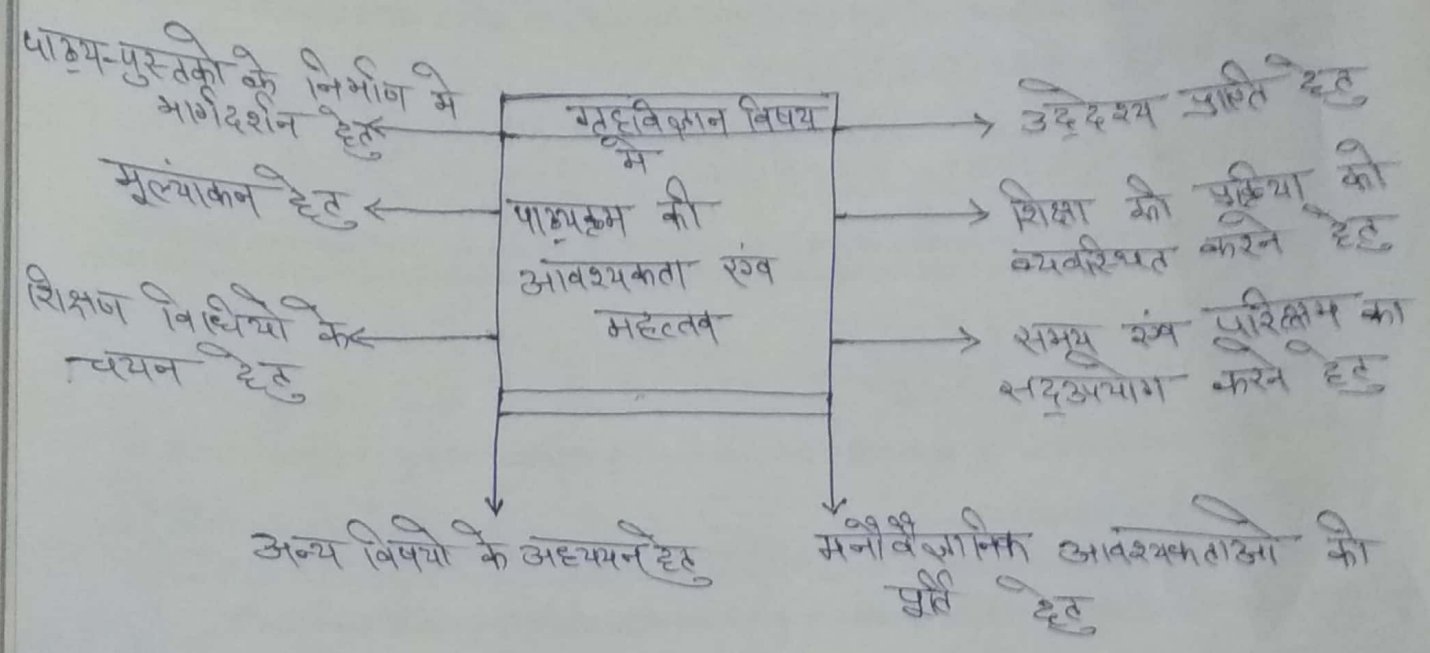 पाठ्य-पुस्तको के निर्माण मे
मार्गदर्शन हेतु
मूल्यांकन हेतु
शिक्षण विधियो के
चयन हेतु
गृहविज्ञान विषय
मे
पाठ्यक्रम की
आवश्यकता एंव
महत्तव
उद्देश्य प्राप्ति हेतु
शिक्षा की प्रक्रिया को
व्यवस्थित करने हेतु
समय एंव परिश्रम का
सद्उपयोग करने हेतु
अन्य विषयो के अध्ययन हेतु
मनोवैज्ञानिक आवश्यकताओ की
पूर्ति हेतु